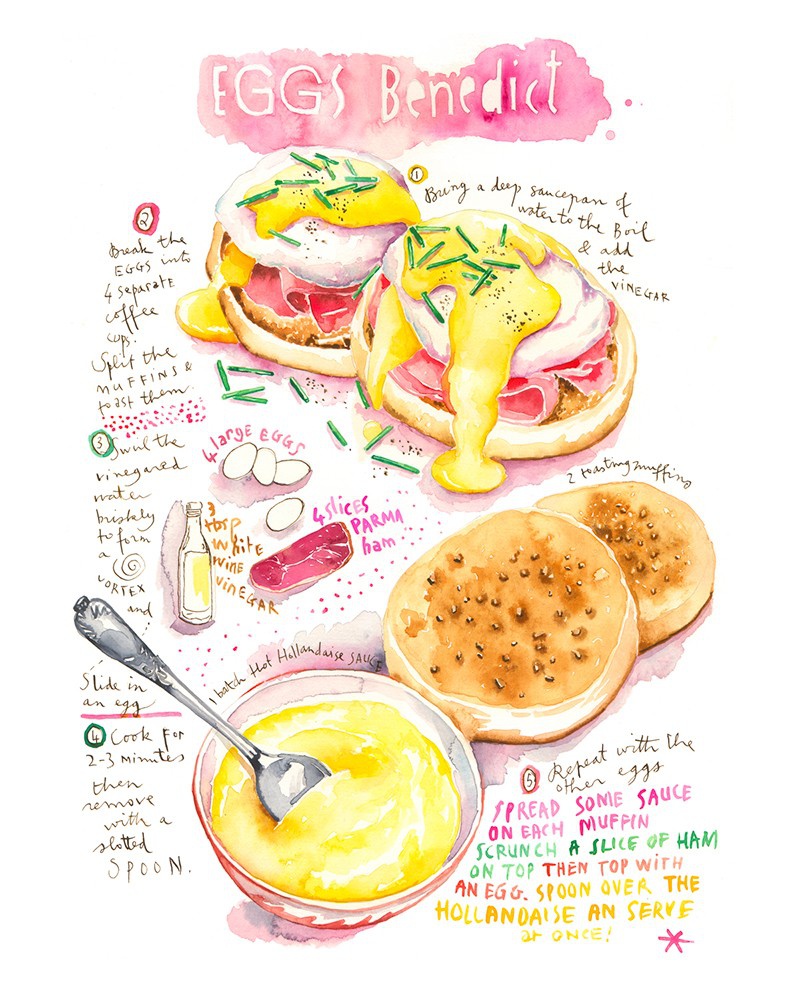 EGGS Benedict
1
Bring a deep saucepan of
water to the Boil
& add
the
VINEGAR
2
Break the
EGGS into
4 separate
coffee
cups.
Split the
MUFFINS &
toast them.
3 Swirl the
vinegared
water
briskly
to form
a
VORTEX
and
Slide in
an egg
4 Cook for
2-3 minutes
then
remove
with a
slotted
SPOON.
4 large EGGS
3
tbsp
white
wine
VINEGAR
4 slices
PARMA
ham
2 toasting muffins
1 batch Hot Hollandaise SAUCE
5 Repeat with the
other eggs
SPREAD SOME SAUCE
ON EACH MUFFIN
SCRUNCH A SLICE OF HAM
ON TOP THEN TOP WITH
AN EGG. SPOON OVER THE
HOLLANDAISE AN SERVE
at ONCE!